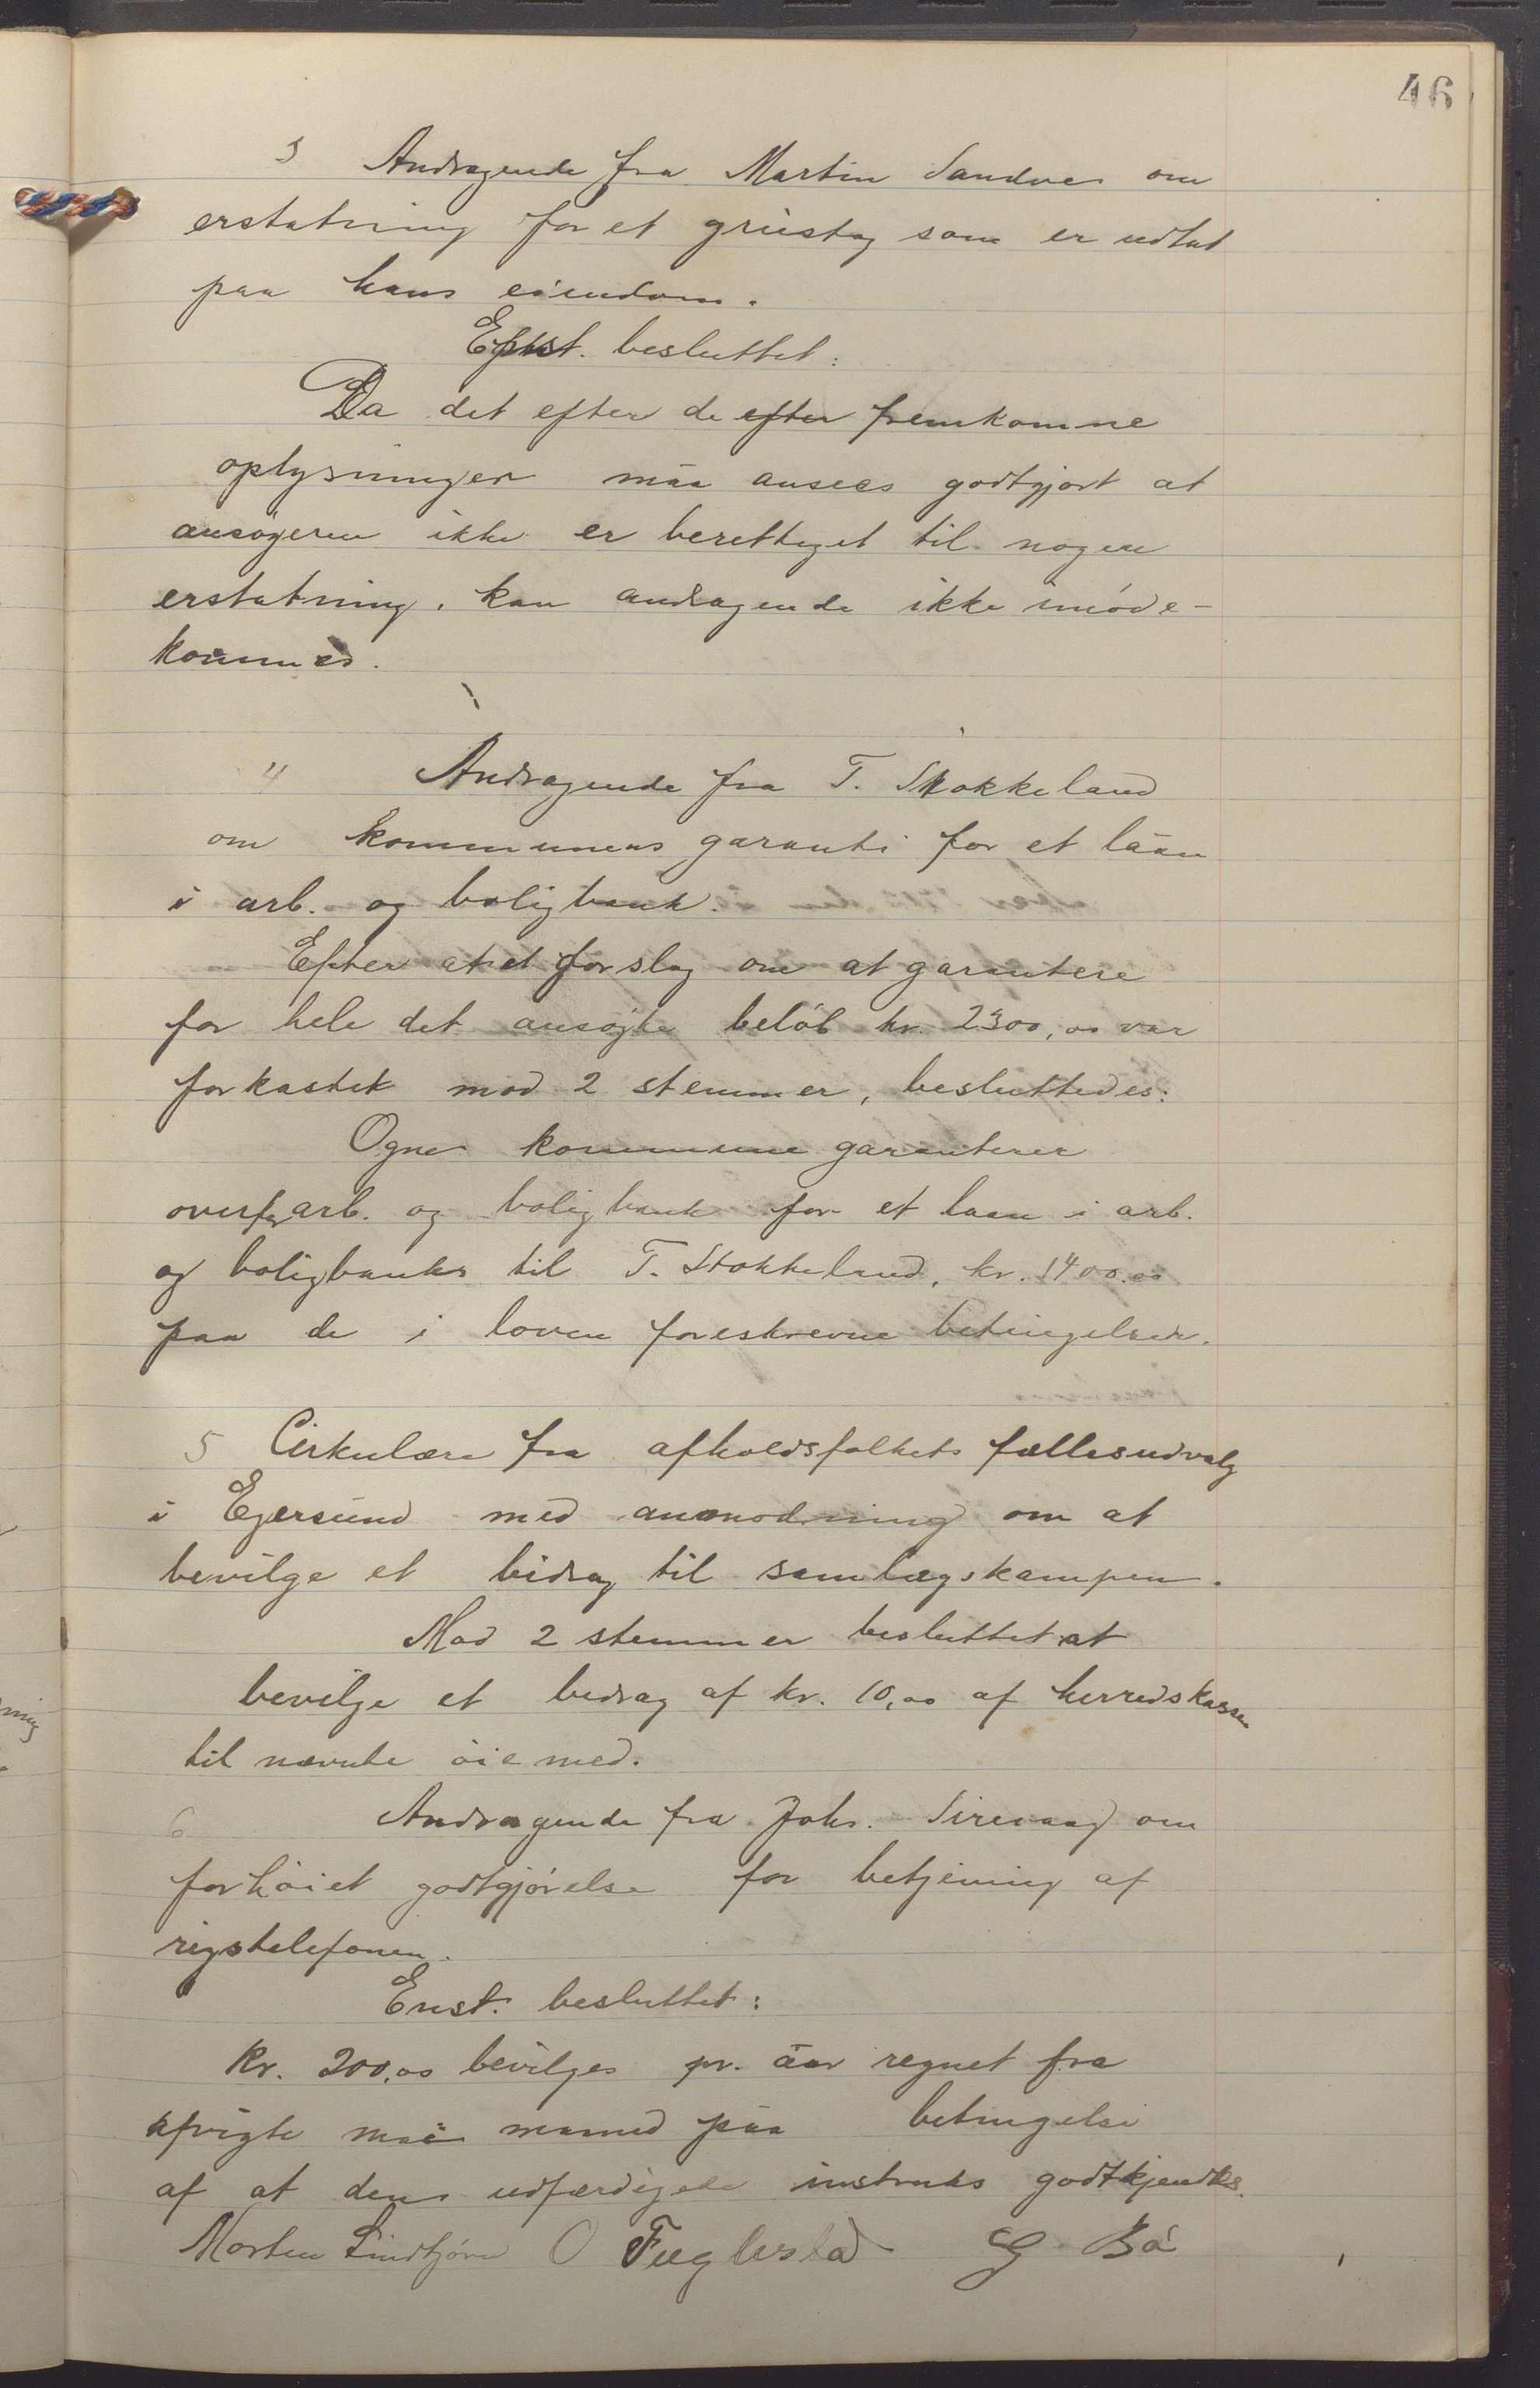 46
3 Andragende fra Martin Sandve om
erstatning for et grustag som er udtat
paa hans eiendom.
Enst. besluttet:
Da det efter de efter fremkomne
oplysninger maa ansees godtgjort at
ansøgeren ikke er berettiget til nogen
erstatning, kan andragende ikke imøde-
kommes.
4 Andragende fra T. Stokkeland
om kommunens garanti for et laan
i arb. og boligbank.
Efter at et forslag om at garantere
for hele det ansøgte beløb kr. 2300,00 var
forkastet mod 2 stemmer, besluttedes:
Ogne kommune garanterer
overfor arb. og boligbank for et laan i arb.
og boligbanks til T. Stokkeland, kr. 1400.00
paa de i loven foreskrevne betingelser.
5 Cirkulære fra afholdsfolkets fællesudvalg
i Egersund med anmodning om at
bevilge et bidrag til samlagskampen.
Mod 2 stemmer besluttet at
bevilge et bidrag af kr. 10,00 af herredskassen
til nævnte øiemed.
6 Andragende fra Johs. Sirevaag om
forhøiet godtgjørelse for betjening af
rigstelefonen.
Enst. besluttet:
Kr. 200,00 bevilges pr. aar regnet fra
afvigte mai maaned paa betingelse
af at den udfærdigede instruks godtkjendtes.
Morten Lindtjørn O Fuglestad G Bø